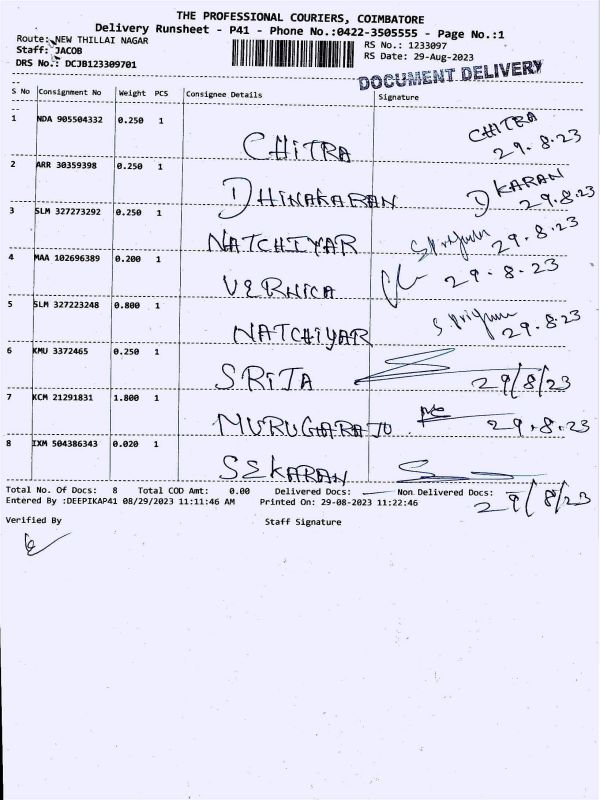 THE PROFESSIONAL COURIERS, COIMBATORE
Delivery Runsheet - P41 - Phone No.:0422-3505555 - Page No.:1
Route: NEW THILLAI NAGAR
RS No.: 1233097
Staff: JACOB
RS Date: 29-Aug-2023
DRS No.: DCJB123309701
DOCUMENT DELIVERY
S No Consignment No Weight PCS Consignee Details Signature
1 NDA 905504332 0.250 1 CHITRA CHITRA 29.8.23
2 ARR 30359398 0.250 1 DHINAKARAN D KARAN 29.8.23
3 SLM 327273292 0.250 1 NATCHIYAR 29.8.23
4 MAA 102696389 0.200 1 VERNICA 29.8.23
5 SLM 327223248 0.800 1 NATCHIYAR 29.8.23
6 KMU 3372465 0.250 1 SRIJA 29/8/23
7 KCM 21291831 1.800 1 MURUGARAJU 29.8.23
8 IXM 504386343 0.020 1 SEKARAN 29/8/23
Total No. Of Docs: 8 Total COD Amt: 0.00 Delivered Docs: Non Delivered Docs:
Entered By :DEEPIKAP41 08/29/2023 11:11:46 AM Printed On: 29-08-2023 11:22:46
Verified By Staff Signature